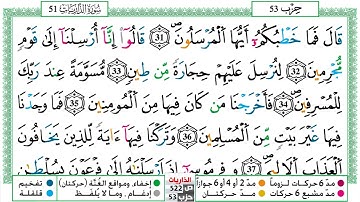 51 سُورَةُ الذَّارِيَاتِ
حِزْب 53
قَالَ فَمَا خَطْبُكُمُۥٓ أَيُّهَا ٱلْمُرْسَلُونَ 31 قَالُوٓا۟ إِنَّآ أُرْسِلْنَآ إِلَىٰ قَوْمٍ
مُّجْرِمِينَ 32 لِنُرْسِلَ عَلَيْهِمْ حِجَارَةً مِّن طِينٍ 33 مُّسَوَّمَةً عِندَ رَبِّكَ
لِلْمُسْرِفِينَ 34 فَأَخْرَجْنَا مَن كَانَ فِيهَا مِنَ ٱلْمُومِنِينَ 35 فَمَا وَجَدْنَا
فِيهَا غَيْرَ بَيْتٍ مِّنَ ٱلْمُسْلِمِينَ 36 وَتَرَكْنَا فِيهَآ ءَايَةً لِّلَّذِينَ يَخَافُونَ
ٱلْعَذَابَ ٱلْأَلِيمَ 37 وَفِي مُوسَىٰٓ إِذْ أَرْسَلْنَٰهُ إِلَىٰ فِرْعَوْنَ بِسُلْطَٰنٍ
مدّ 6 حركات لزوماً مدّ 2 أو 4 أو 6 جوازاً إخفاء، ومواقع الغُنَّة (حركتان) تفخيم
مدّ مشبع 6 حركات مدّ حركتان إدغام، وما لا يُلفَظ قلقلة
الذاريات
ص 522
حزب 53